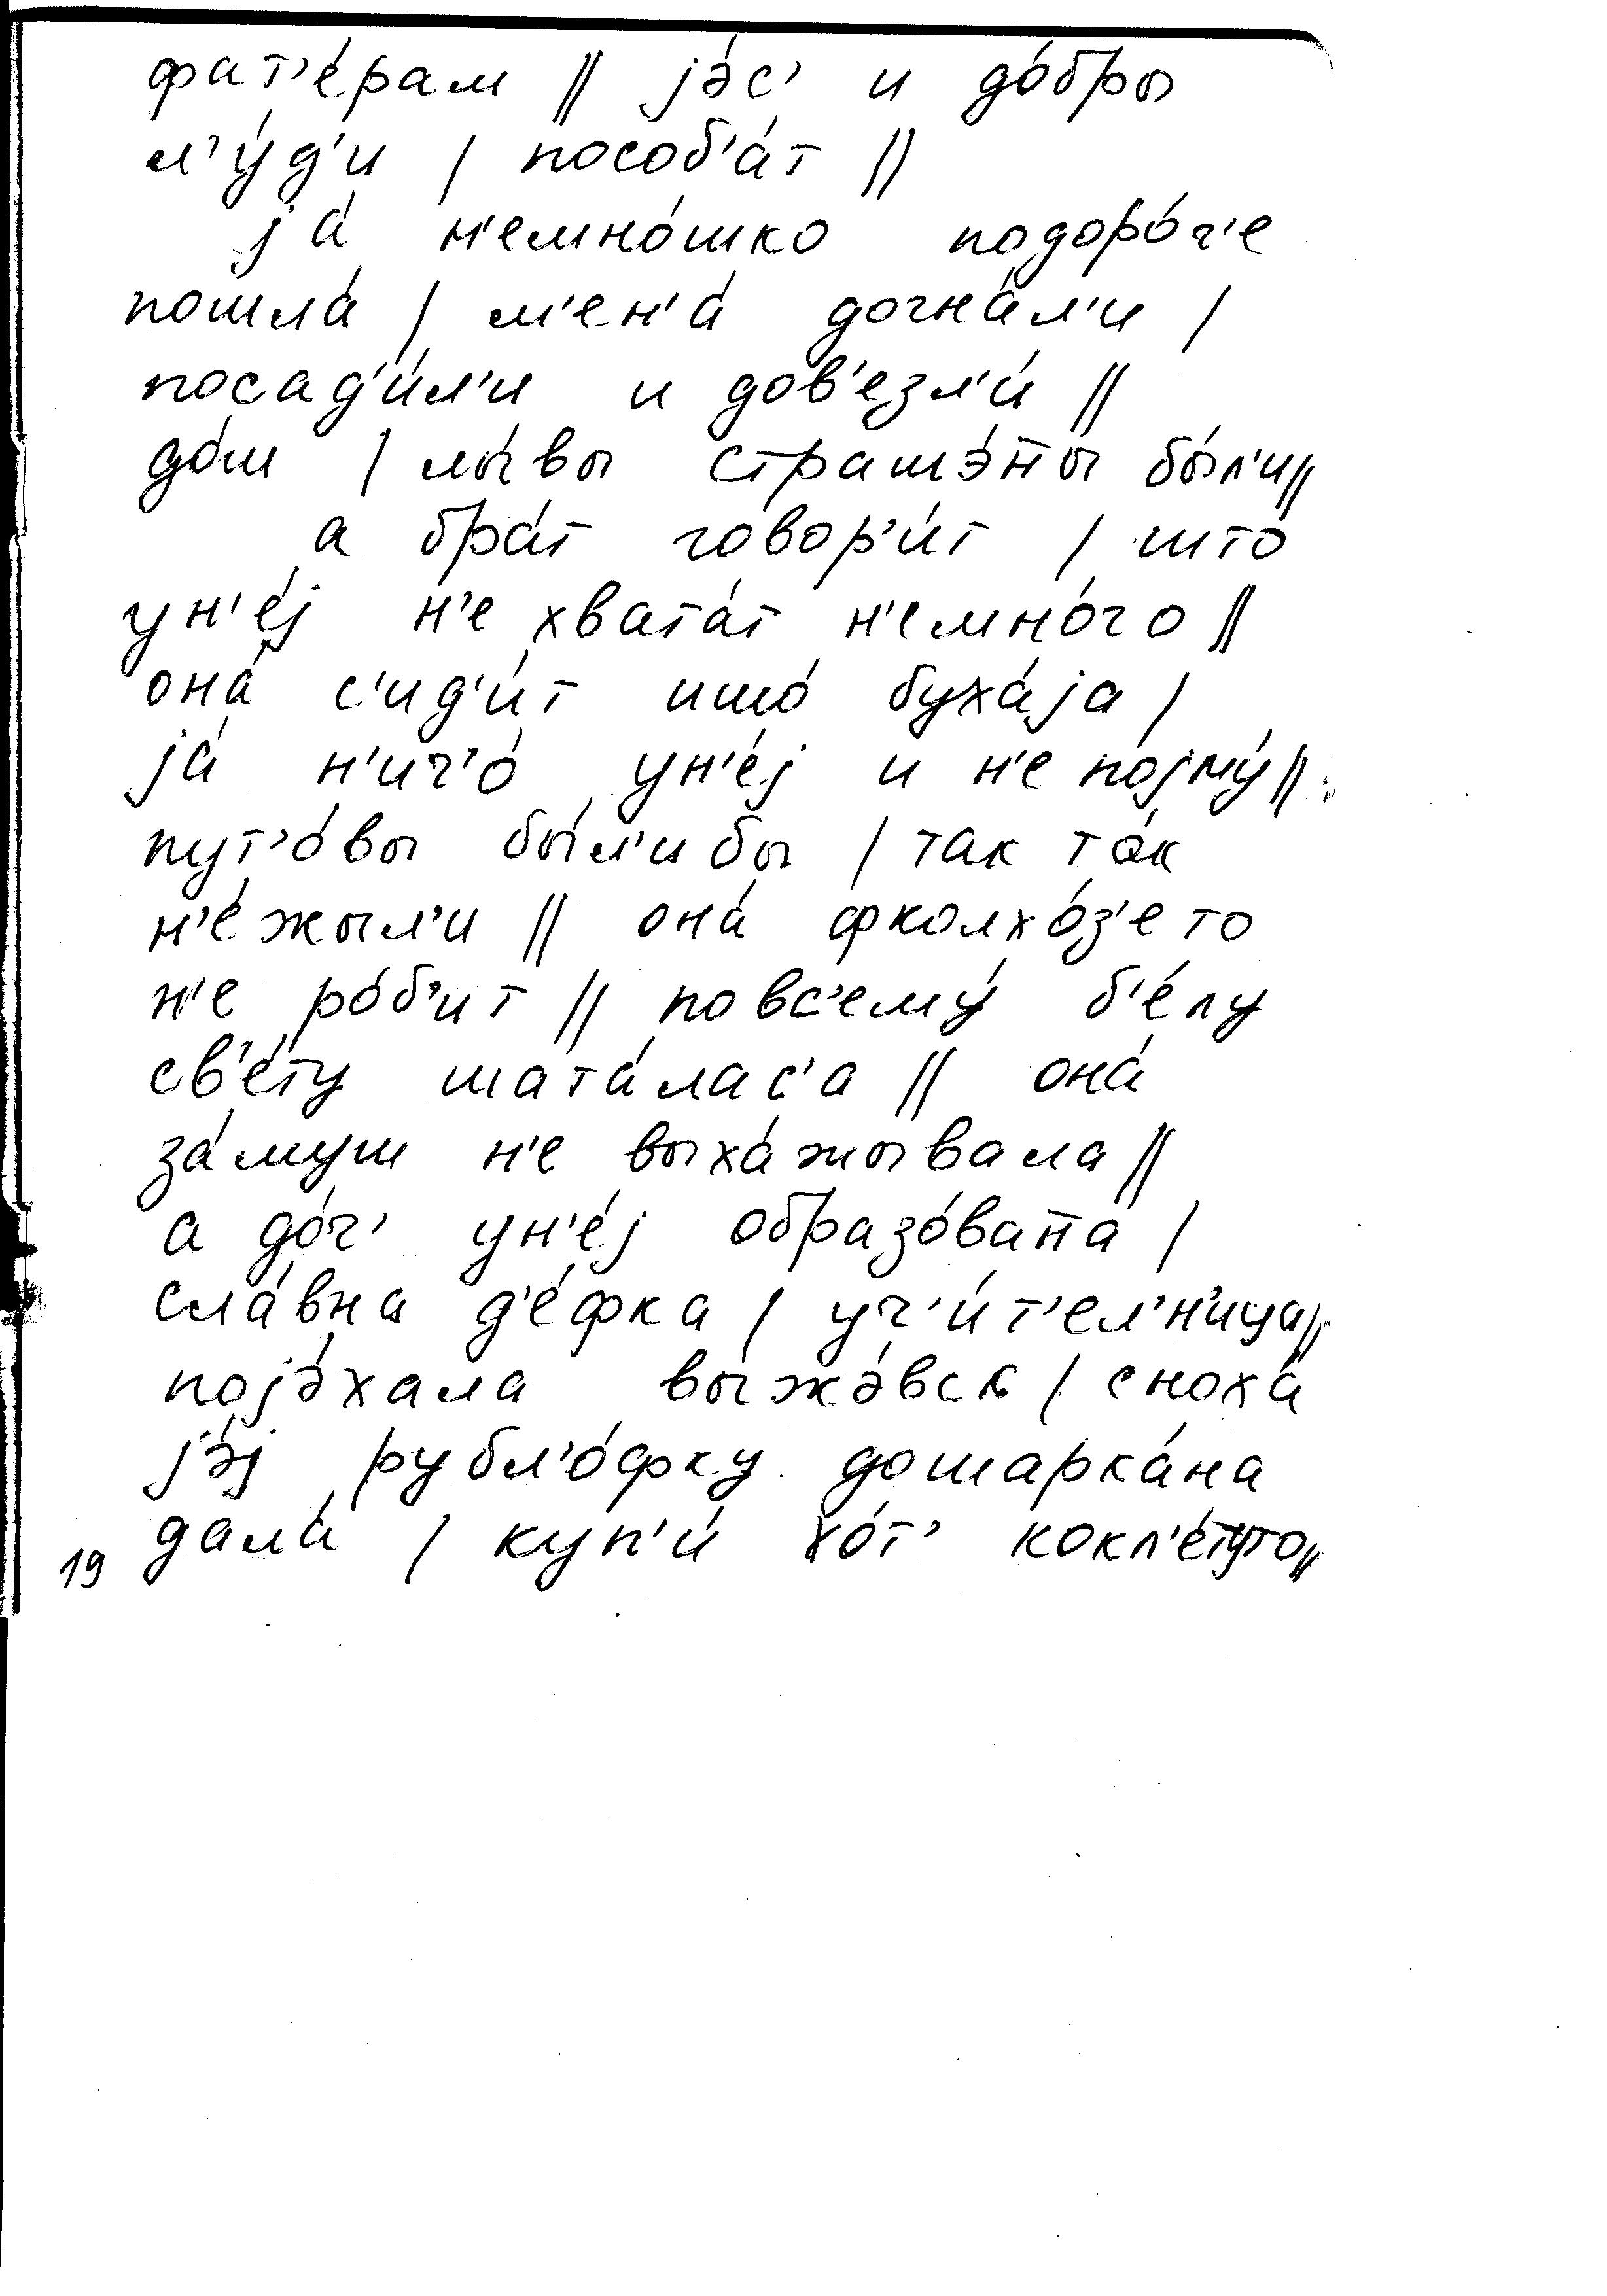 фат'е́рам || jэ́с' и до́бры
л'у́д'и | пособ'а́т ||
jа́ н'емно́шко подоро́г'е
пошла́ | м'ен'а́ догна́л'и |
посад'и́л'и и дов'езл'и́ ||
до́ш | лы́вы страшэ́н̄ы бы́л'и ||
а бра́т говор'и́т | што́
ун'е́j н'е хвата́т н'емно́го ||
она́ с'ид'и́т ишо́ буха́jа |
jа́ н'ич'о́ ун'е́j и н'е поjму́ ||
пут'о́вы бы́л'и бы | так та́к
н'е́ жыл'и || она́ фколхо́з'е то
н'е ро́б'ит || по вс'ему́ б'е́лу
св'е́ту шата́лас'а || она́
за́муш н'е выха́жывала ||
а до́ч' ун'е́j образо́ван̄а |
сла́вна д'е́фка | уч'и́т'ел'н'ица ||
поjэ́хала выжэ́вск | сноха́
jэ́j рубл'о́фку дошарка́на
дала́ | куп'и́ хо́т' кокл'е́туто ||
19